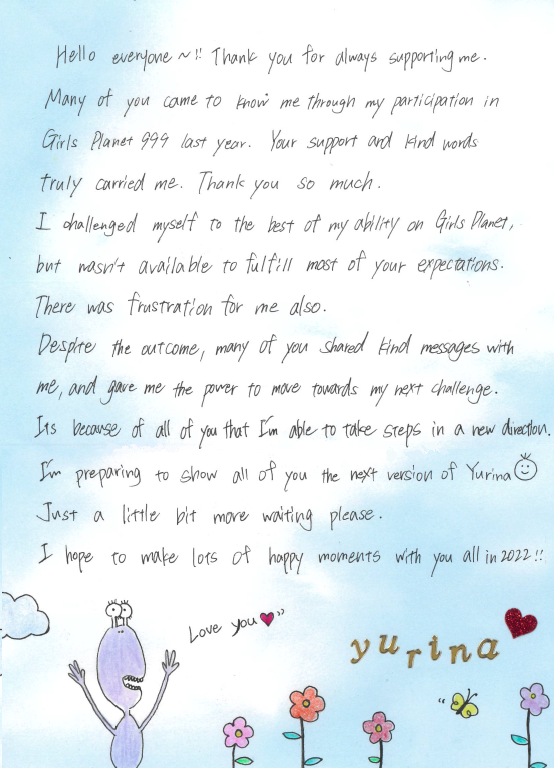 Hello everyone ~!! Thank you for always supporting me.
Many of you came to know me through my participation in
Girls Planet 999 last year. Your support and kind words
truly carried me. Thank you so much.
I challenged myself to the best of my ability on Girls Planet,
but wasn't available to fulfill most of your expectations.
There was frustration for me also.
Despite the outcome, many of you shared kind messages with
me, and gave me the power to move towards my next challenge.
Its because of all of you that I'm able to take steps in a new direction.
I'm preparing to show all of you the next version of Yurina
Just a little bit more waiting please.
I hope to make lots of happy moments with you all in 2022!!
Love you
yurina